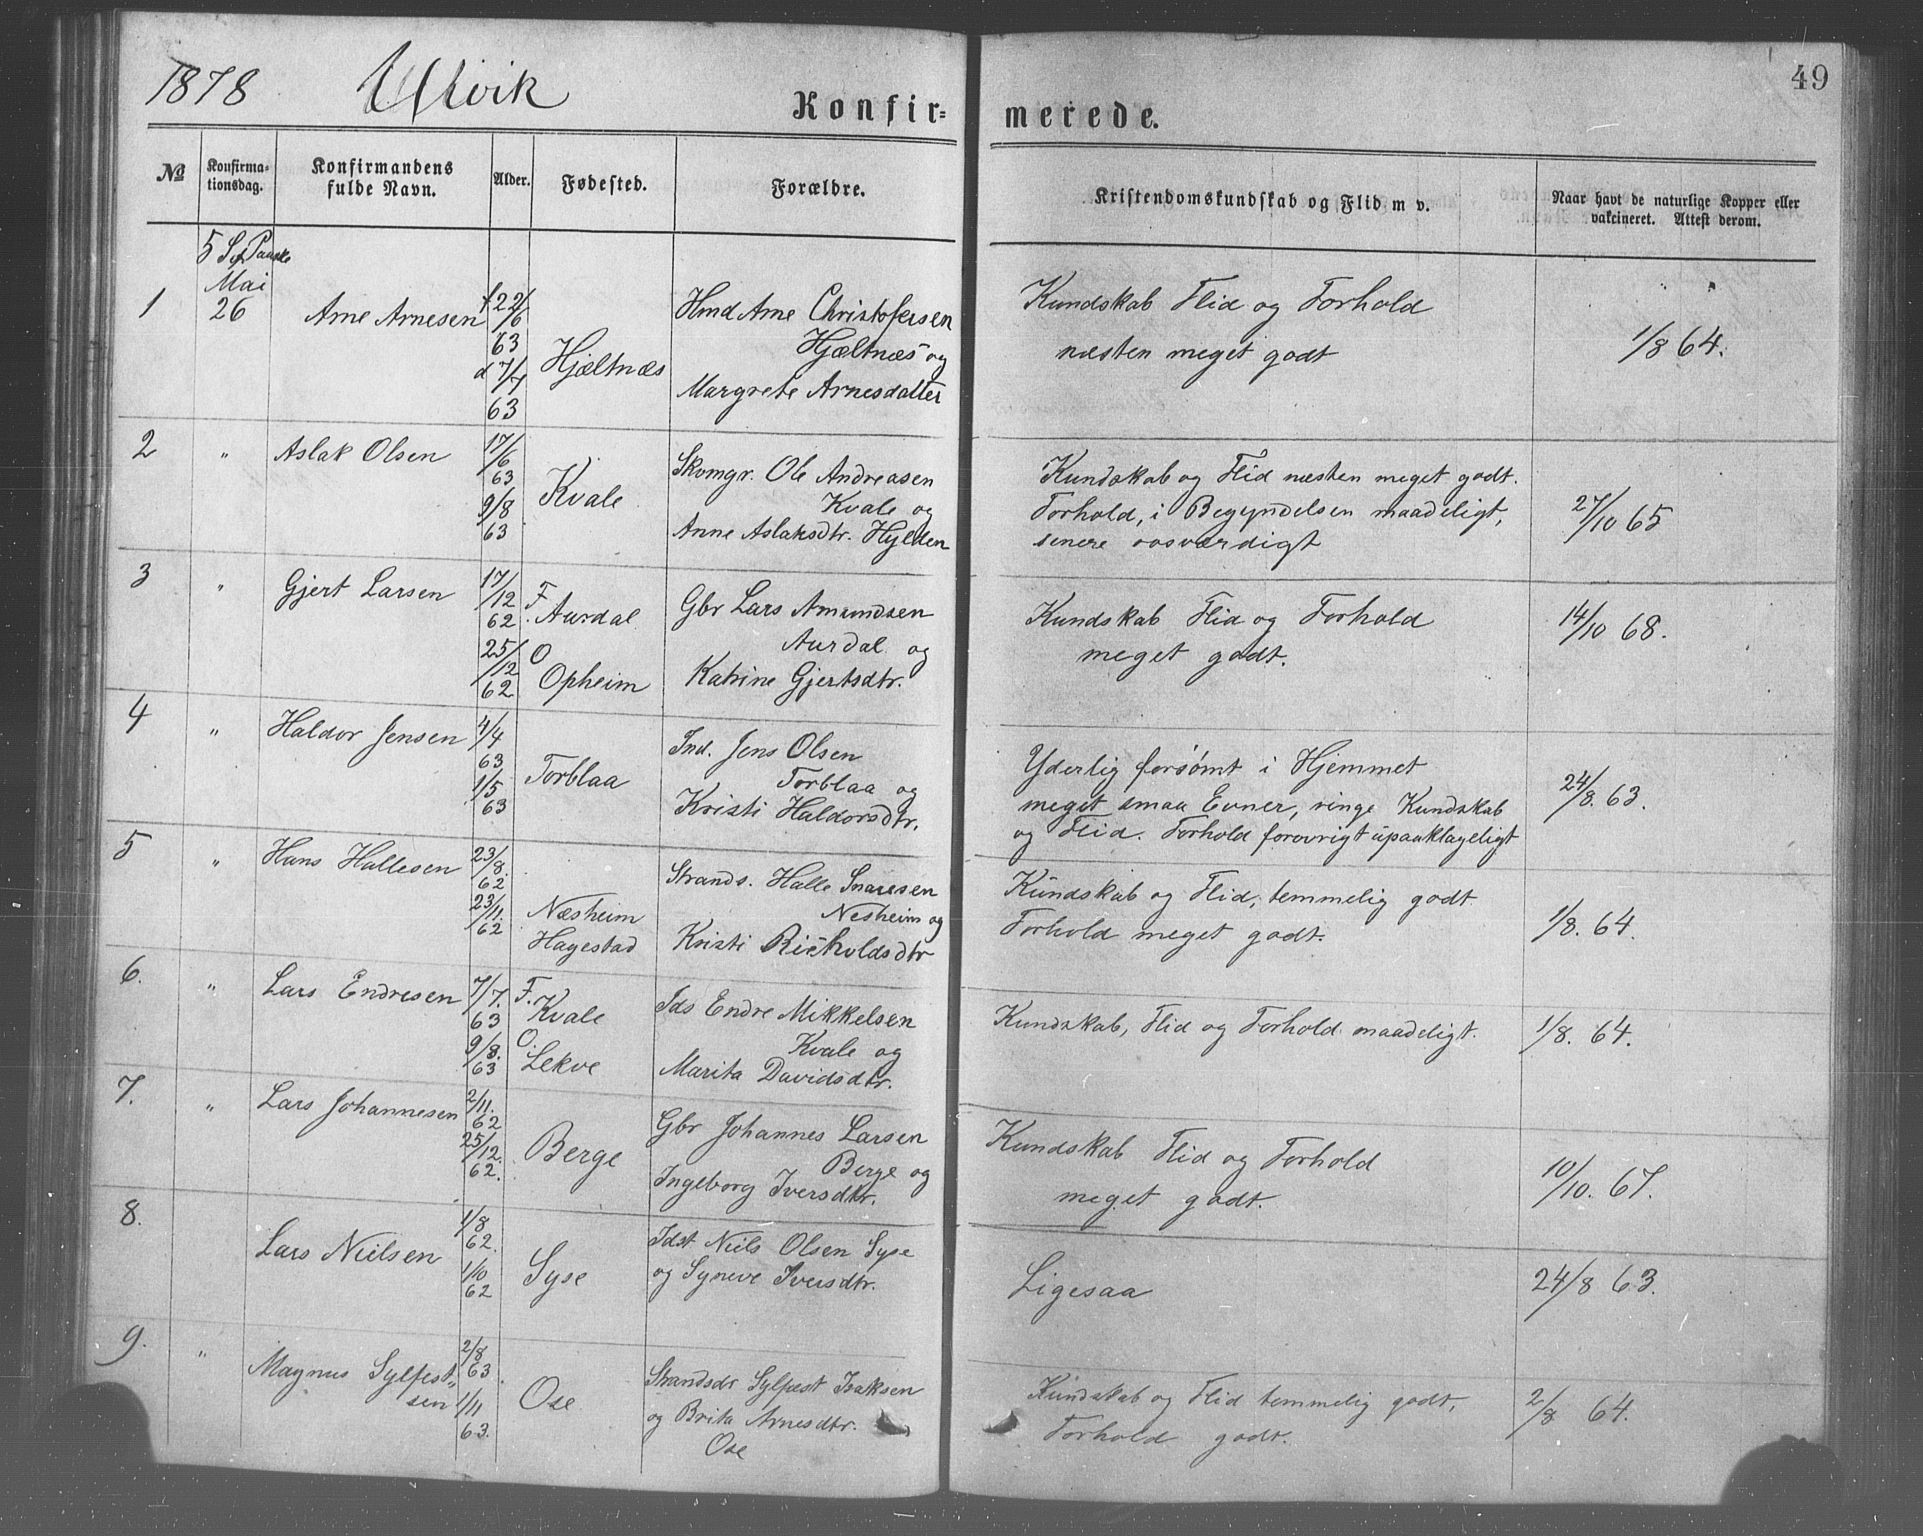 1878 Ulvik
Konfir=
merede.
49
№
Konfirma-
tionsdag.
Konfirmandens
fulde Navn.
Alder.
Fødested.
Forældre.
Kristendomskundskab og Flid m v.
Naar havt de naturlige Kopper eller
vakcineret. Attest derom.
5 S. e. Paaske
Mai
1 26 Arne Arnesen f 22/6 63 d 7/7 63 Hjæltnæs
Hmd Arne Christofersen
Hjæltnæs og
Margrete Arnesdatter
Kundskab Flid og Forhold
næsten meget godt
1/8 64.
2 " Aslak Olsen 17/6 63 9/8 63 Kvale
Skomgr. Ole Andreasen
Kvale og
Anne Aslaksdtr. Hylden
Kundskab og Flid næsten meget godt.
Forhold, i Begyndelsen maadeligt,
senere rosværdigt
27/10 65
3 " Gjert Larsen 17/12 62 25/12 62 F. Aurdal O Opheim
Gbr Lars Amundsen
Aurdal og
Katrine Gjertsdtr.
Kundskab Flid og Forhold
meget godt.
14/10 68.
4 " Haldor Jensen 4/4 63 1/5 63 Torblaa
Ind. Jens Olsen
Torblaa og
Kristi Haldorsdtr.
Yderlig forsømt i Hjemmet
meget smaa Evner, ringe Kundskab
og Flid. Forhold forovrigt upaaklageligt
24/8. 63.
5 " Hans Hallesen 23/8. 62 23/11. 62 Næsheim
Hagestad
Strands. Halle Snaresen
Nesheim og
Kristi Richoldsdtr
Kundskab og Flid, temmelig godt
Forhold meget godt.
1/8. 64.
6. " Lars Endresen 7/7. 63 9/8. 63 F. Kvale O. Lekve
Ids Endre Mikkelsen
Kvale og
Marita Davidsdtr.
Kundskab, Flid og Forhold maadeligt.
1/8. 64.
7. " Lars Johannesen 2/11. 62 25/12. 62. Berge
Gbr Johannes Larsen
Berge og
Ingeborg Iversdtr.
Kundskab Flid og Forhold
meget godt.
10/10. 67.
8. Lars Nielsen 1/8 62. 1/10 62 Syse
Idst Niels Olsen Syse
og Syneve Iversdtr.
Ligesaa
24/8 63.
9. " Magnus Sylfest-
sen 2/8 63. 1/11 63. Ose
Strandsdr Sylfæst Isaksen
og Brita Arnesdtr.
Ose
Kundskab og Flid temmelig godt,
Forhold godt.
2/8 64.